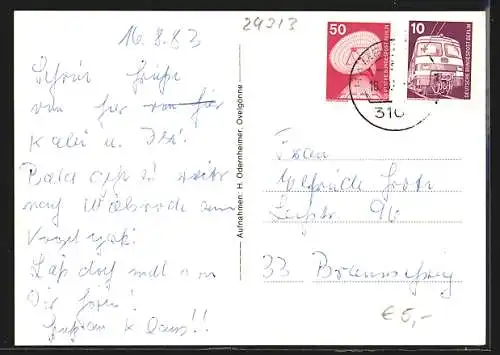 16.8.83
24213
Schöne Grüße
von hier von hier
Kalli u. Ilse!
Bald geht es weiter
nach Walsrode zum
Vogelpark!
Laß doch mal von
Dir hören!
Gruß an Klaus!!
Aufnahmen: H. Odernheimer, Ovelgönne
50
DEUTSCHE BUNDESPOST BERLIN
10
DEUTSCHE BUNDESPOST BERLIN
310
Frau
Elfriede
96
33 Braunschweig
€ 5,-